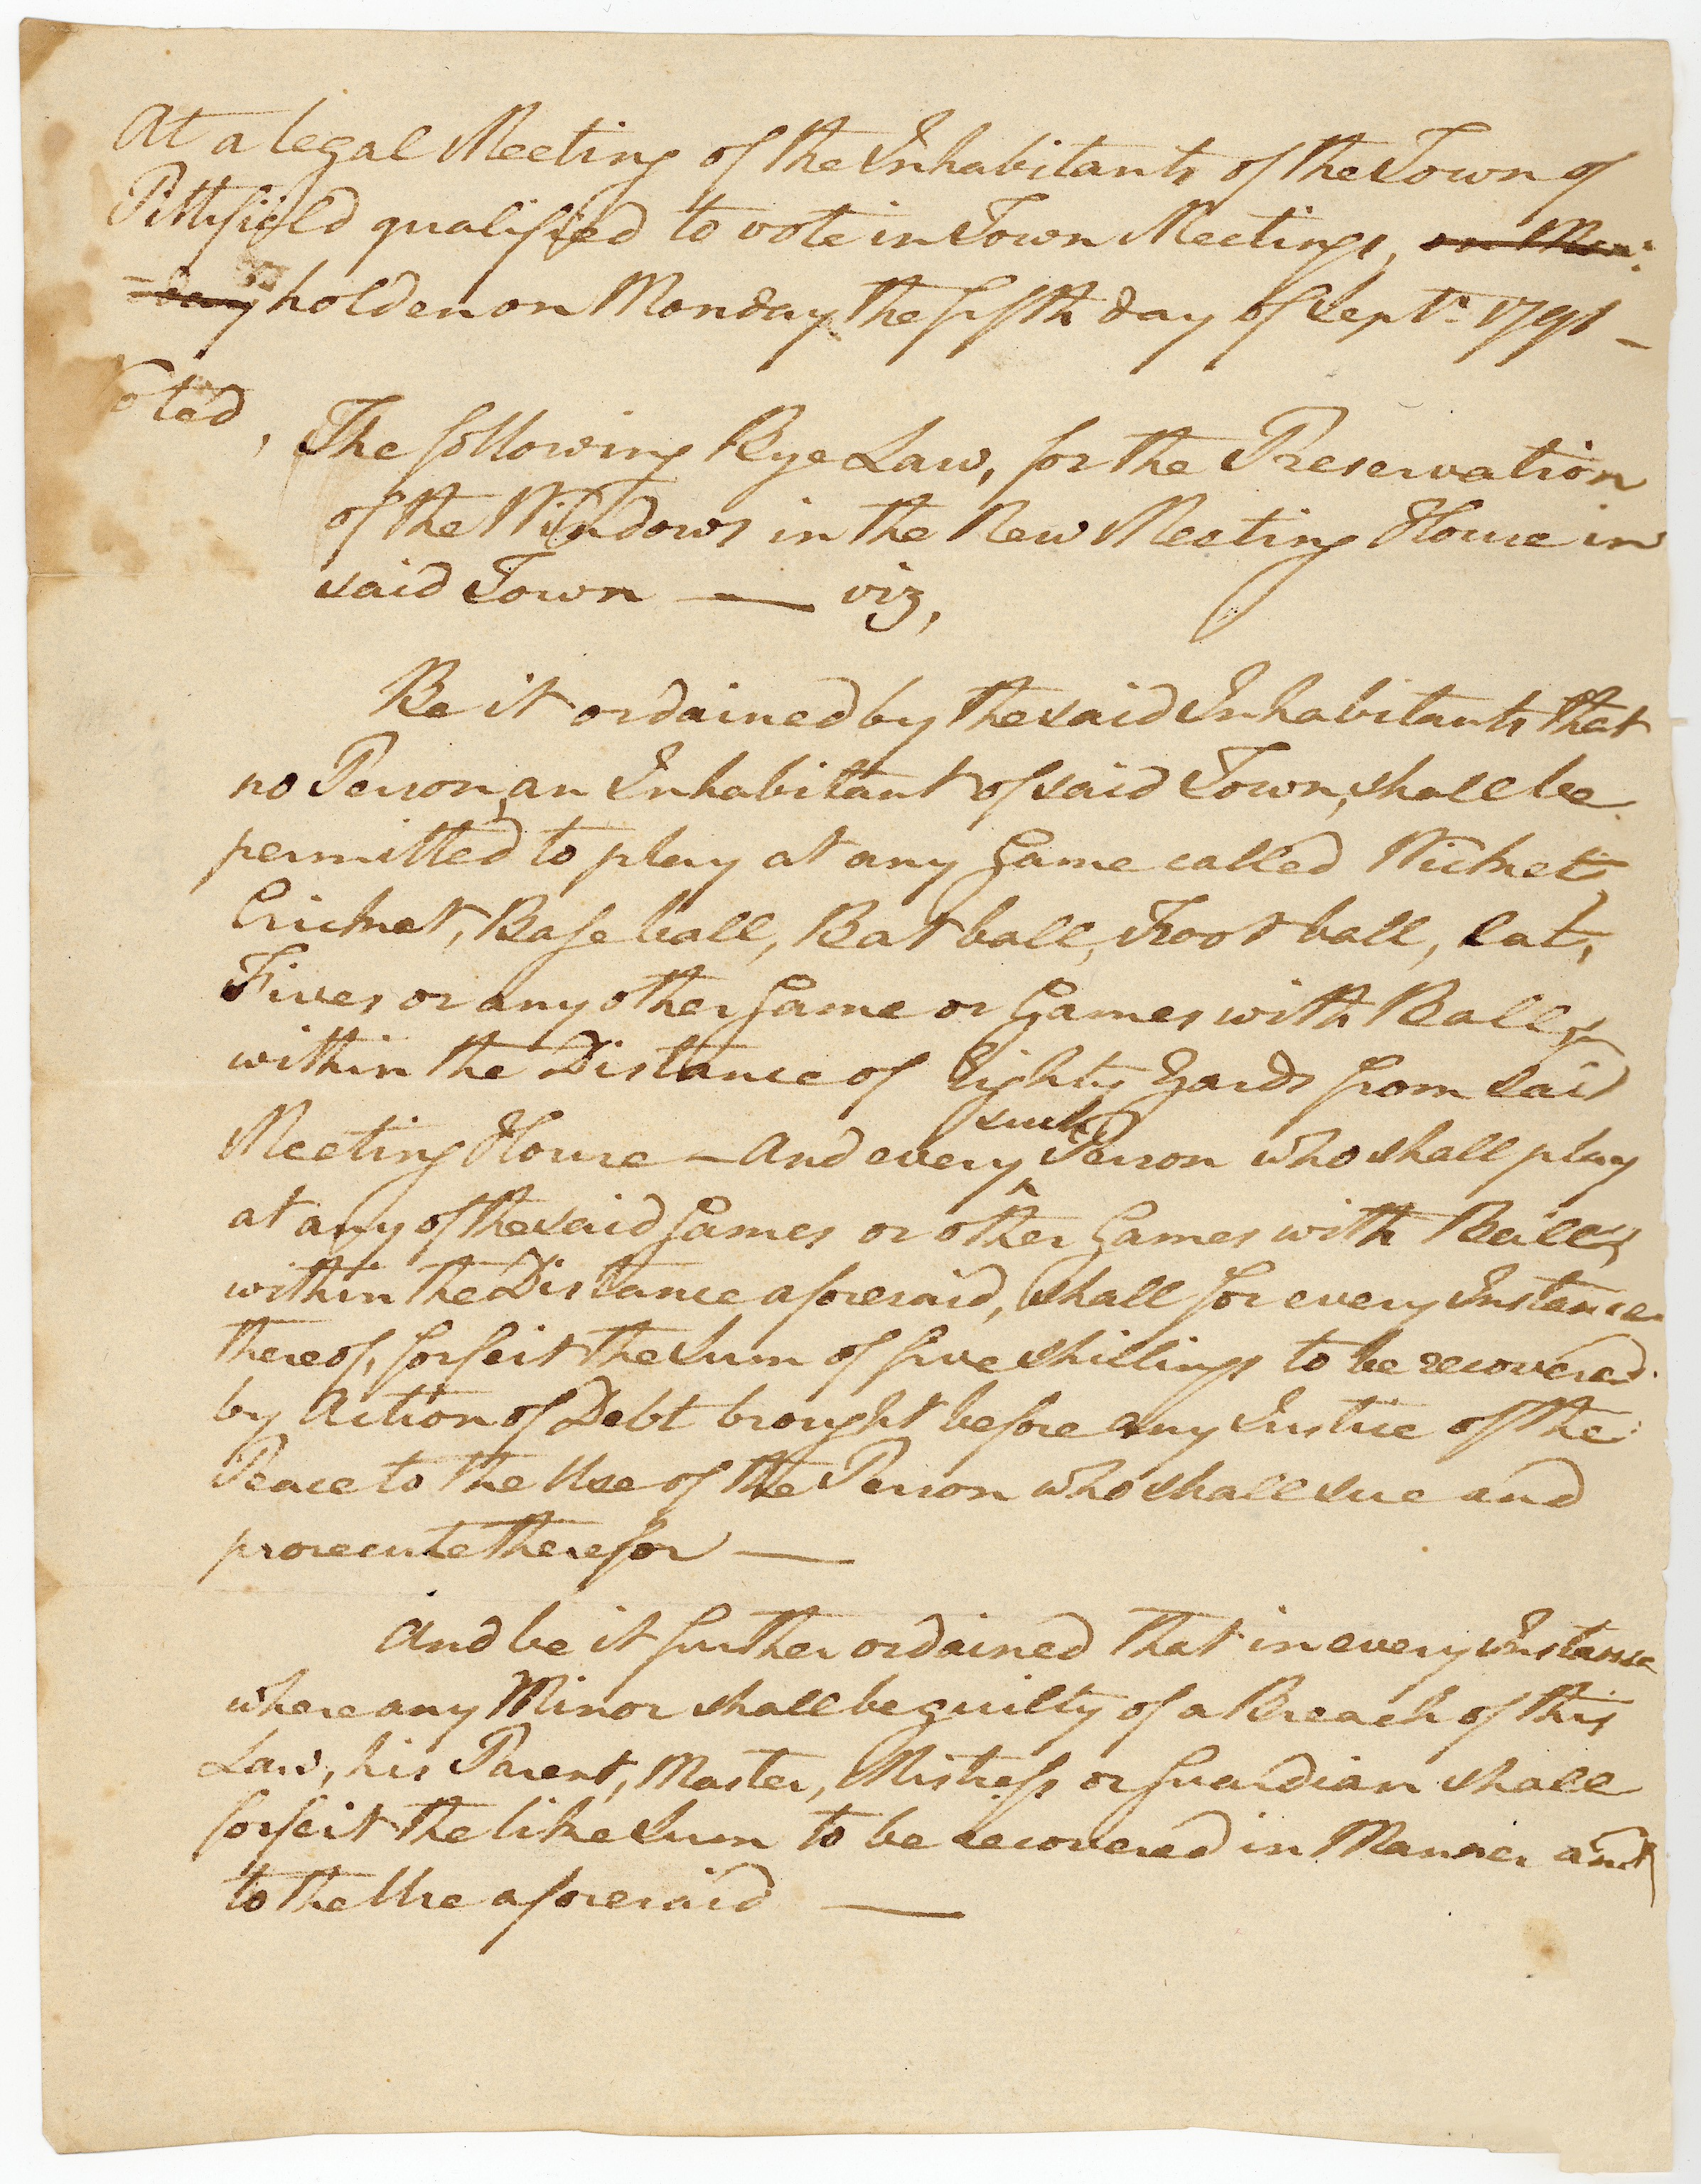 At a legal Meeting of the Inhabitants of the Town of
Pittsfield qualified to vote in Town Meetings, on Mon:
=day holden on Monday the fifth day of Sept.r 1791 —
Voted,
The following Bye Law, for the Preservation
of the Windows in the New Meeting House in
said Town — viz,
Be it ordained by the said Inhabitants that
no Person, an Inhabitant of said Town, shall be
permitted to play at any Game called Wicket,
Cricket, Baseball, Batball, Football, Cat,
Fives or any other Game or Games with Balls
within the Distance of Eighty Yards from said
Meeting House — And every such Person who shall play
at any of the said Games or other Games with Balls
within the Distance aforesaid, shall for every Instance
thereof, forfeit the Sum of five Shillings to be recovered
by Action of Debt brought before any Justice of the
Peace to the Use of the Person who shall sue and
prosecute therefor —
And be it further ordained that in every Instance
where any Minor shall be guilty of a Breach of this
Law, his Parent, Master, Mistress or Guardian shall
forfeit the like Sum to be recovered in Manner and
to the Use aforesaid —